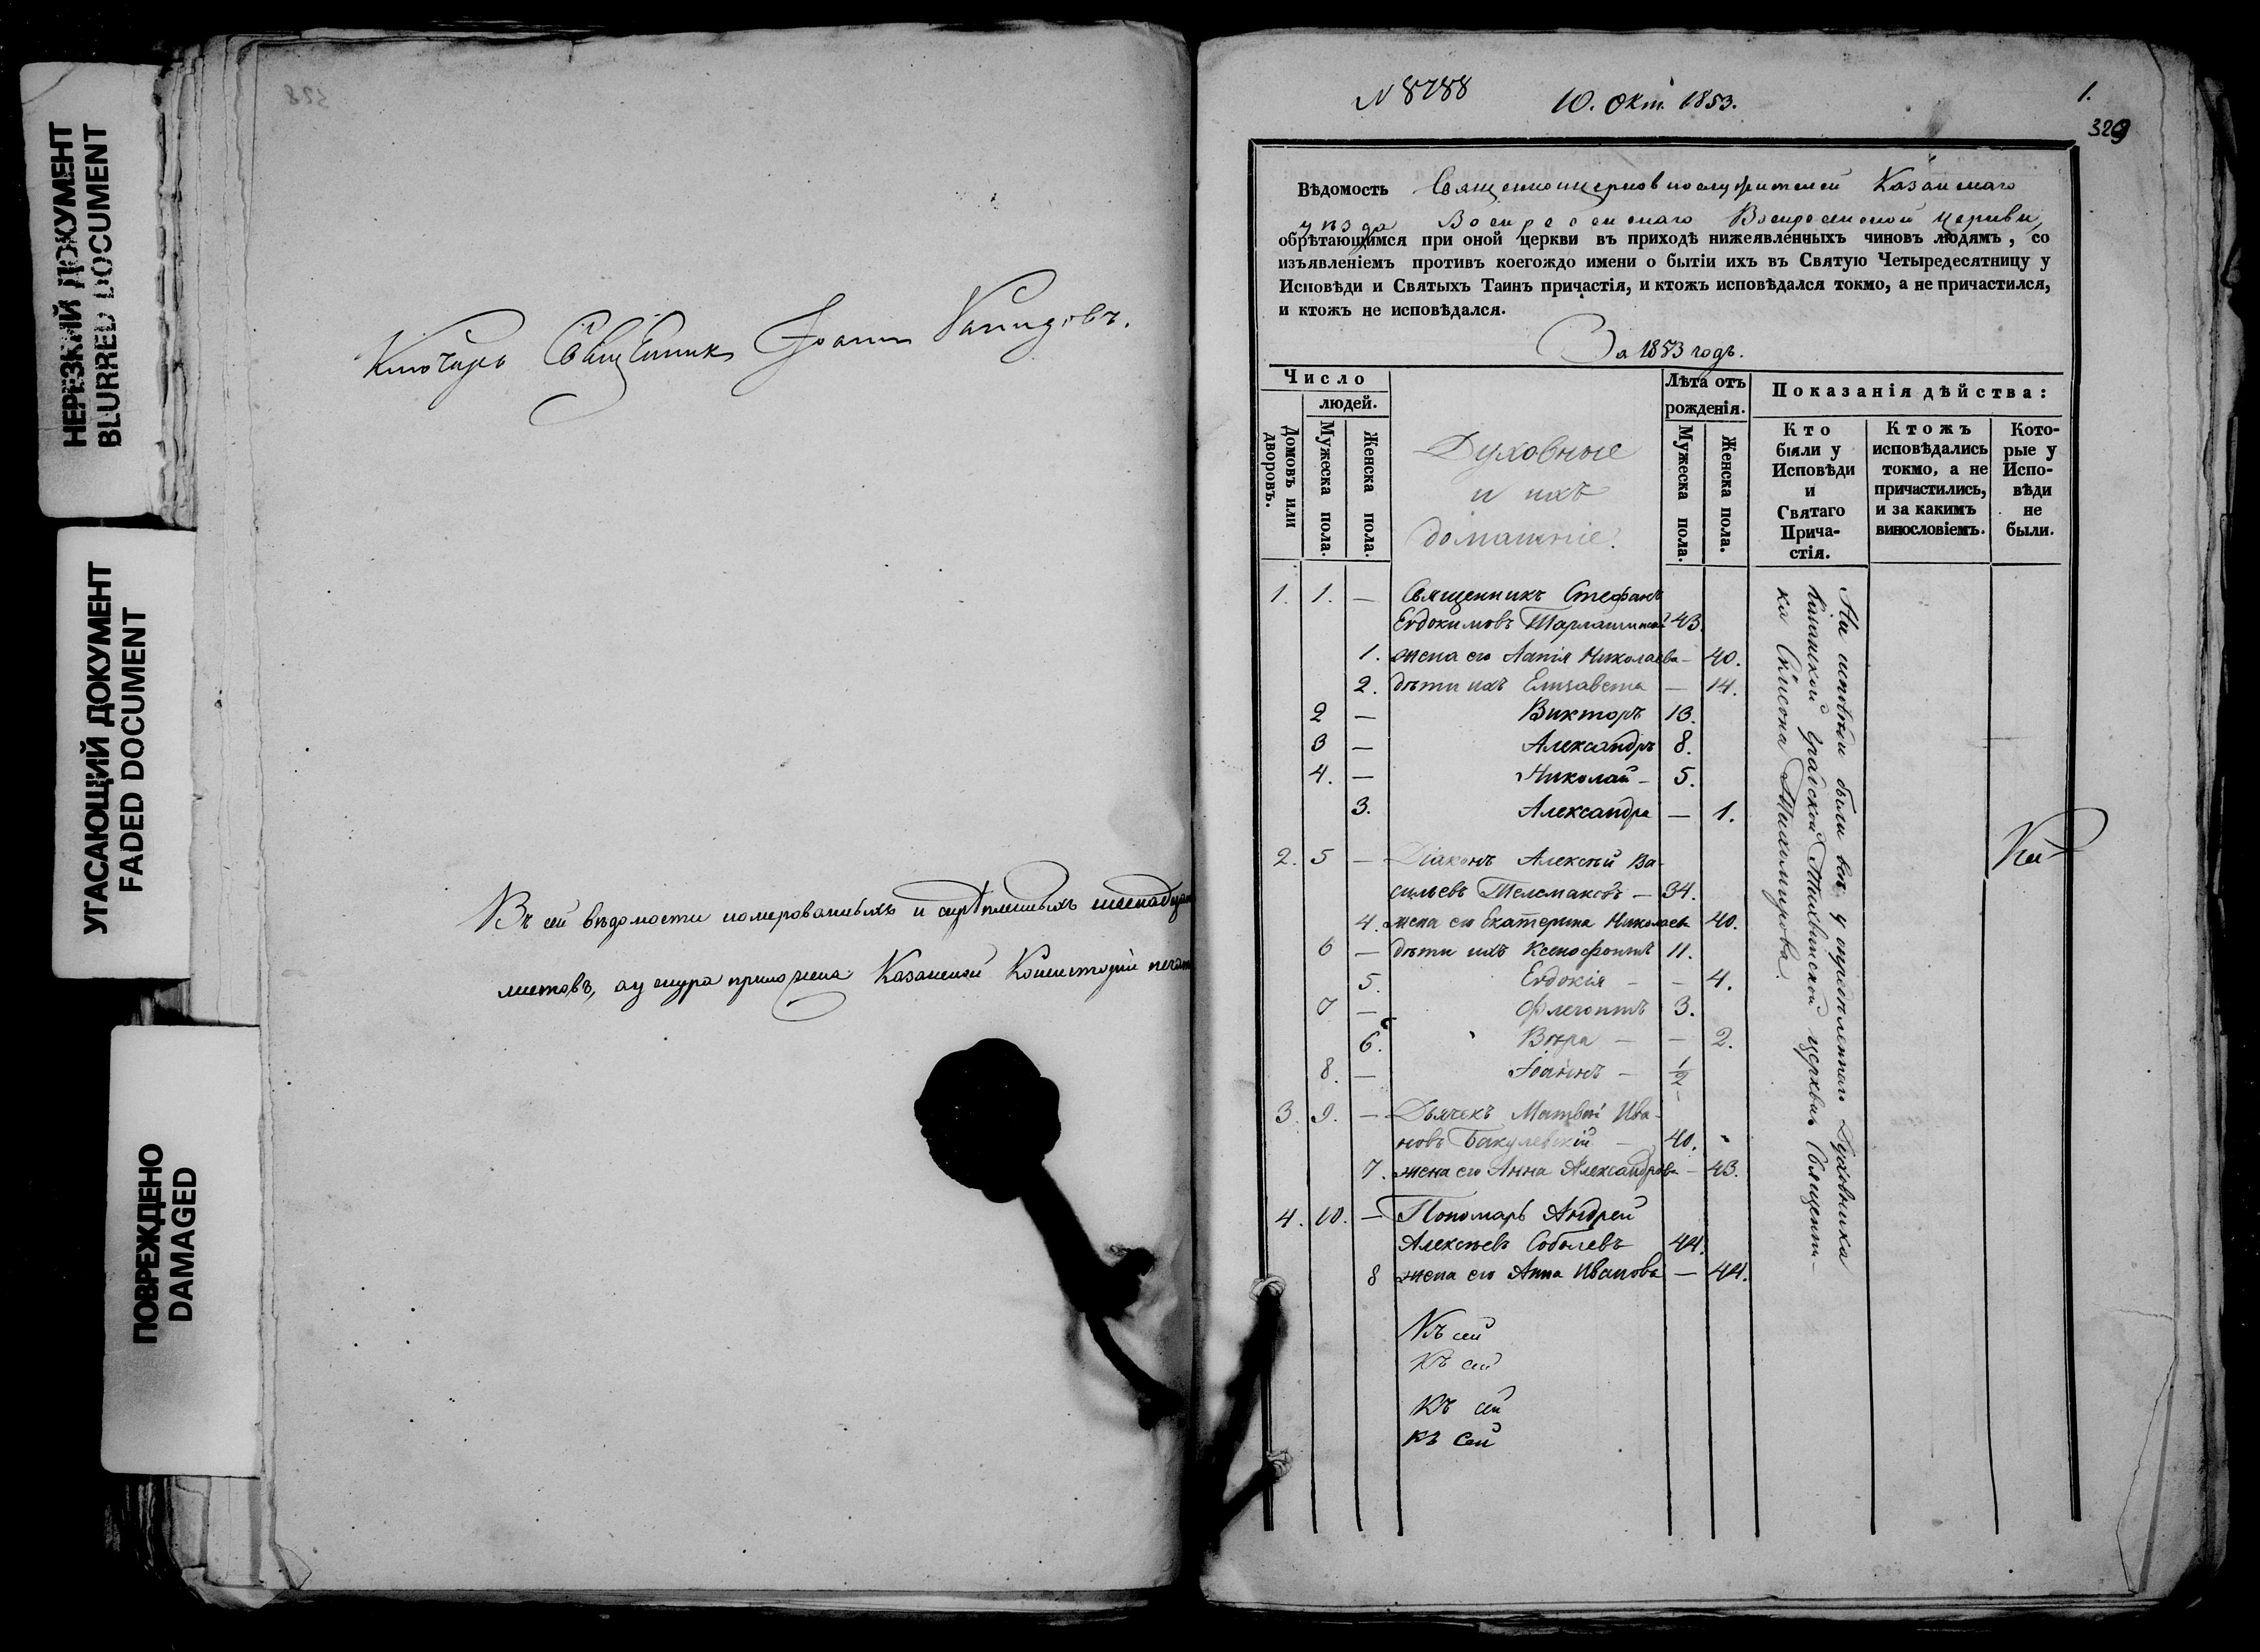 НЕРЕЗКИЙ ДОКУМЕНТ
BLURRED DOCUMENT
УГАСАЮЩИЙ ДОКУМЕНТ
FADED DOCUMENT
ПОВРЕЖДЕНО
DAMAGED
328
Ключарь Священникъ Іоаннъ
Въ сей вѣдомости номерованныхъ и скрѣпленныхъ
листовъ, къ шнура приложена Казанской Консисторіи
N 8788 10. Окт. 1853.
1.
329
Вѣдомость Священноцерковнослужителей Казанскаго
уѣзда Воскресенскаго Воскресенской церкви,
обрѣтающимся при оной церкви въ приходѣ нижеявленныхъ чиновъ людямъ, со
изъявленіемъ противъ коегождо имени о бытіи ихъ въ Святую Четыредесятницу у
Исповѣди и Святыхъ Таинъ причастія, и ктожъ исповѣдался токмо, а не причастился,
и ктожъ не исповѣдался.
За 1853 годъ.
Число
людей.
Домовъ или дворовъ.
Мужеска пола.
Женска пола.
Духовные
и ихъ
домашніе.
Лѣта отъ
рожденія.
Мужеска пола.
Женска пола.
Показанія дѣйства:
Кто
были у
Исповѣди
и
Святаго
Прича-
стія.
Ктожъ
исповѣдались
токмо, а не
причастились,
и за какимъ
винословіемъ.
Кото-
рые у
Испо-
вѣди
не
были.
1. 1. — Священникъ Стефанъ
Евдокимовъ 43.
1. жена его Николаева — 40.
2. дѣти ихъ Елизавета — 14.
2 — Викторъ 13.
3 — Александръ 8.
4. — Николай — 5.
3. Александра — 1.
2. 5 — Діаконъ Алексѣй Ва-
сильевъ Телемаковъ — 34.
4. жена его Екатерина Николаева 40.
6 — дѣти ихъ Ксенофонтъ 11.
5. Евдокія — — 4.
7 — Флегонтъ 3.
6. Вѣра — — 2.
8. — Іоаннъ — 1/2
3. 9. — Дьячекъ Матвей Ива-
новъ Бакулевскій — 40.
7. жена его Анна Александрова — 43.
4. 10. — Пономарь Андрей
Алексѣевъ Соболевъ 44.
8 жена его Анна Иванова — 44.
На исповѣди были всѣ у опредѣленнаго Духовника
Казанской Градской Тихвинской церкви Священни-
ка Симеона Тихомирова.
Къ сей
Къ сей
Къ сей
Къ сей